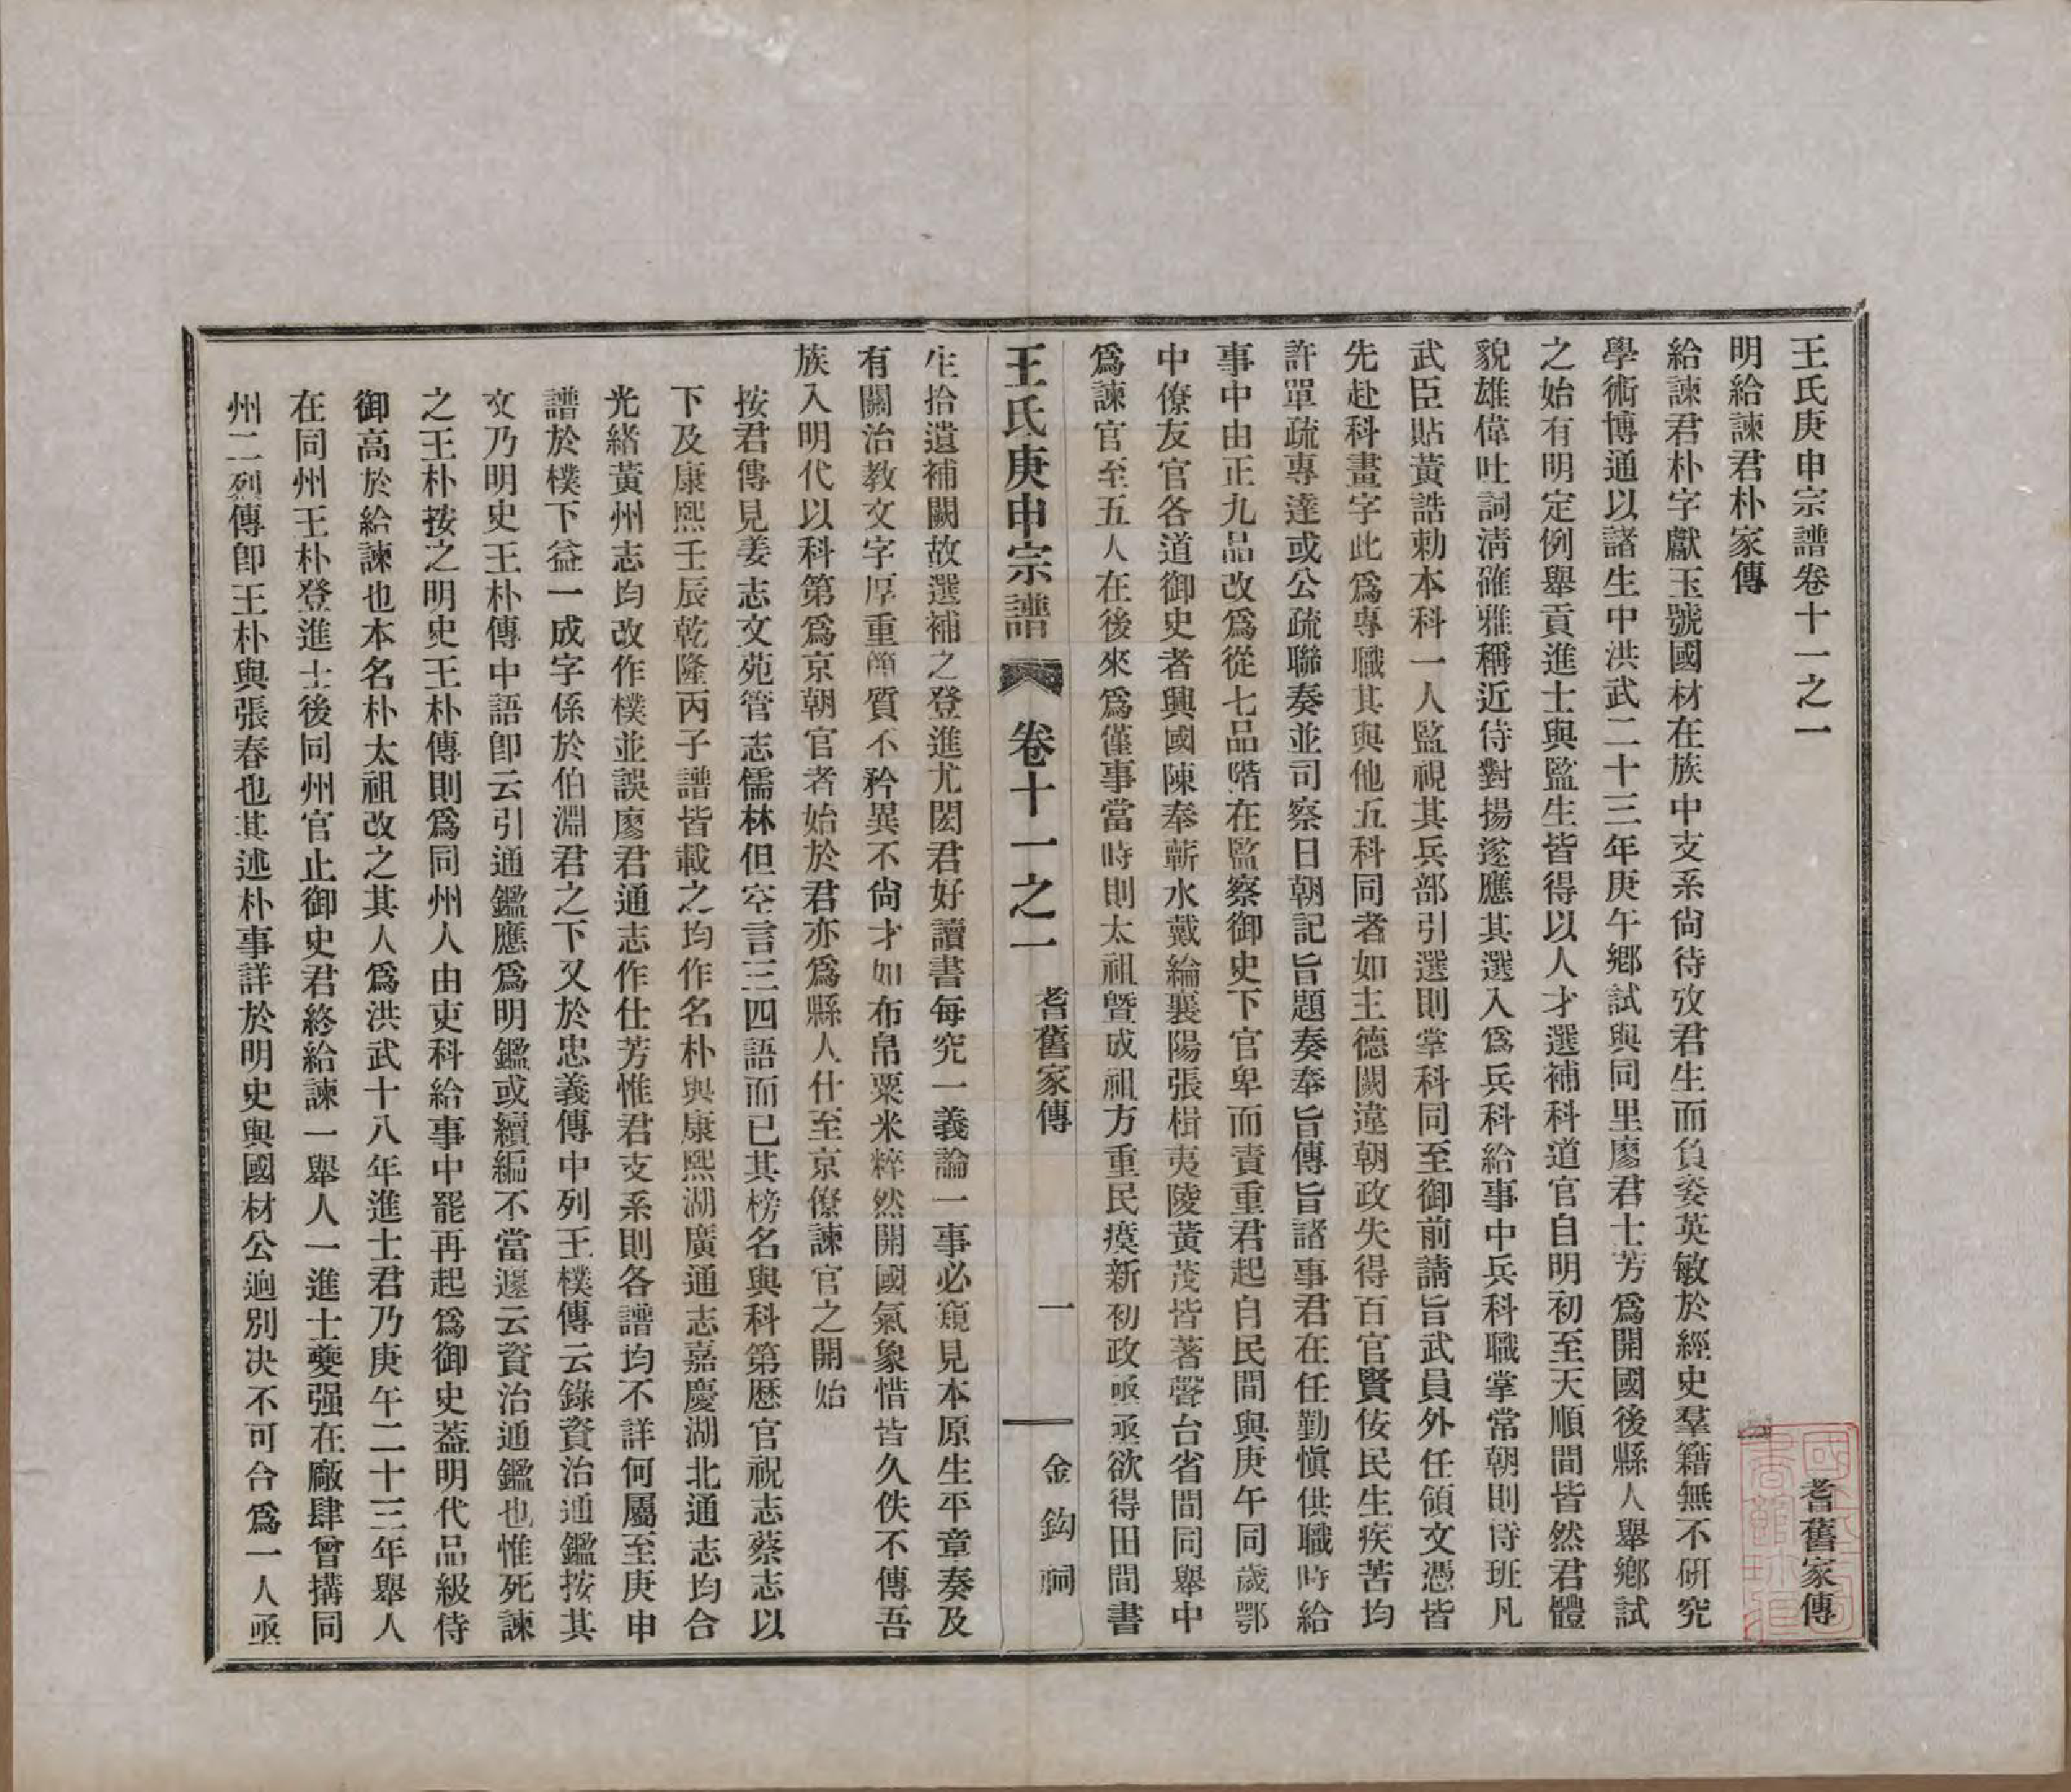 王氏庚申宗譜卷十一之一
耆舊家傳
明給諫君朴家傳
給諫君朴字獻玉號國材在族中支系尙待攷君生而負姿英敏於經史羣籍無不硏究
學術博通以諸生中洪武二十三年庚午鄕試與同里廖君士芳爲開國後縣人舉鄕試
之始有明定例舉貢進士與監生皆得以人才選補科道官自明初至天順間皆然君體
貌雄偉吐詞淸確雅稱近侍對揚遂應其選入爲兵科給事中兵科職掌常朝則侍班凡
武臣貼黃誥勅本科一人監視其兵部引選則掌科同至御前請旨武員外任領文憑皆
先赴科畫字此爲專職其與他五科同者如主德闕違朝政失得百官賢佞民生疾苦均
許單疏專達或公疏聯奏並司察日朝記旨題奏奉旨傳旨諸事君在任勤愼供職時給
事中由正九品改爲從七品階在監察御史下官卑而責重君起自民間與庚午同歲鄂
中僚友官各道御史者興國陳奉蘄水戴綸襄陽張楫夷陵黃茂皆著聲台省間同舉中
爲諫官至五人在後來爲僅事當時則太祖曁成祖方重民瘼新初政亟亟欲得田間書
王氏庚申宗譜
卷十一之一
耆舊家傳
一
金鈎祠
生拾遺補闕故選補之登進尤閎君好讀書每究一義論一事必窺見本原生平章奏及
有關治教文字厚重簡質不矜異不尙才如布帛粟米粹然開國氣象惜皆久佚不傳吾
族入明代以科第爲京朝官者始於君亦爲縣人仕至京僚諫官之開始
按君傳見姜志文苑管志儒林但空言三四語而已其榜名與科第歷官祝志蔡志以
下及康熙壬辰乾隆丙子譜皆載之均作名朴與康熙湖廣通志嘉慶湖北通志均合
光緒黃州志均改作樸並誤廖君通志作仕芳惟君支系則各譜均不詳何屬至庚申
譜於樸下益一成字係於伯淵君之下又於忠義傳中列王樸傳云錄資治通鑑按其
文乃明史王朴傳中語卽云引通鑑應爲明鑑或續編不當遽云資治通鑑也惟死諫
之王朴按之明史王朴傳則爲同州人由吏科給事中罷再起爲御史葢明代品級侍
御高於給諫也本名朴太祖改之其人爲洪武十八年進士君乃庚午二十三年舉人
在同州王朴登進士後同州官止御史君終給諫一舉人一進士夔强在廠肆曾搆同
州二列傳卽王朴與張春也其述朴事詳於明史與國材公逈別决不可合爲一人亟